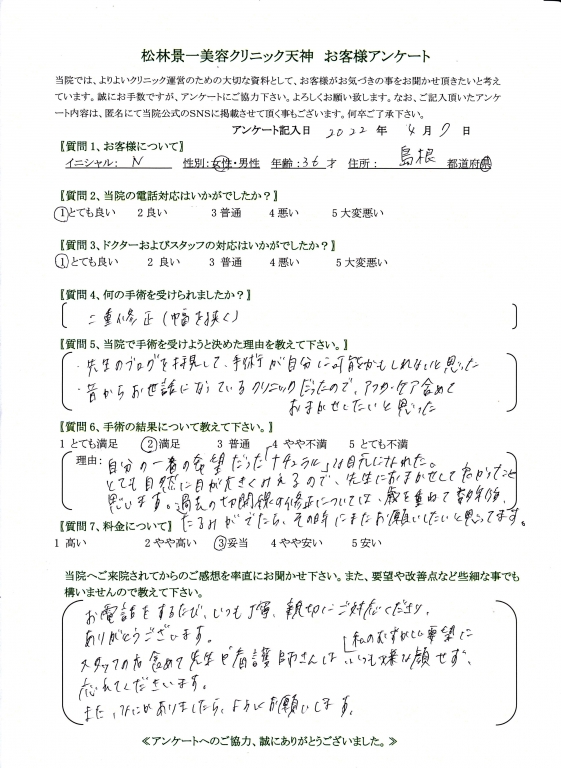 松林景一美容クリニック天神　お客様アンケート
当院では、よりよいクリニック運営のための大切な資料として、お客様がお気づきの事をお聞かせ頂きたいと考え
ています。誠にお手数ですが、アンケートにご協力下さい。よろしくお願い致します。なお、ご記入頂いたアンケ
ート内容は、匿名にて当院公式のSNSに掲載させて頂く事もございます。何卒ご了承下さい。
アンケート記入日　2022 年　4 月 7 日
【質問１、お客様について】
イニシャル：　N　性別：女性・男性　年齢：36 才　住所：　島根　都道府県
【質問２、当院の電話対応はいかがでしたか？】
1 とても良い　2 良い　3 普通　4 悪い　5 大変悪い
【質問３、ドクターおよびスタッフの対応はいかがでしたか？】
1 とても良い　2 良い　3 普通　4 悪い　5 大変悪い
【質問４、何の手術を受けられましたか？】
二重修正（幅を狭く）
【質問５、当院で手術を受けようと決めた理由を教えて下さい。】
・先生のブログを拝見して、手術が自分に可能かもしれないと思った
・昔からお世話になっているクリニックだったので、アフターケア含めて
おまかせしたいと思った
【質問６、手術の結果について教えて下さい。】
1 とても満足　2 満足　3 普通　4 やや不満　5 とても不満
理由：自分の一番の希望だった「ナチュラル」な目元になれた。
とても自然に目が大きくみえるので、先生におまかせしてよかったと
思います。過去の切開線の修正については、歳を重ねて
たるみがでたら、その時にまたお願いしたいと思ってます。
【質問７、料金について】
1 高い　2 やや高い　3 妥当　4 やや安い　5 安い
当院へご来院されてからのご感想を率直にお聞かせ下さい。また、要望や改善点など些細な事でも
構いませんので教えて下さい。
お電話をするたび、いつも丁寧、親切にご対応くださり、
ありがとうございます。
私のむずかしい要望に
スタッフの方含めて先生や看護師さんは いつも嫌な顔せず、
応えてくださいます。
また、なにかありましたら、よろしくお願いします。
≪アンケートへのご協力、誠にありがとうございました。≫